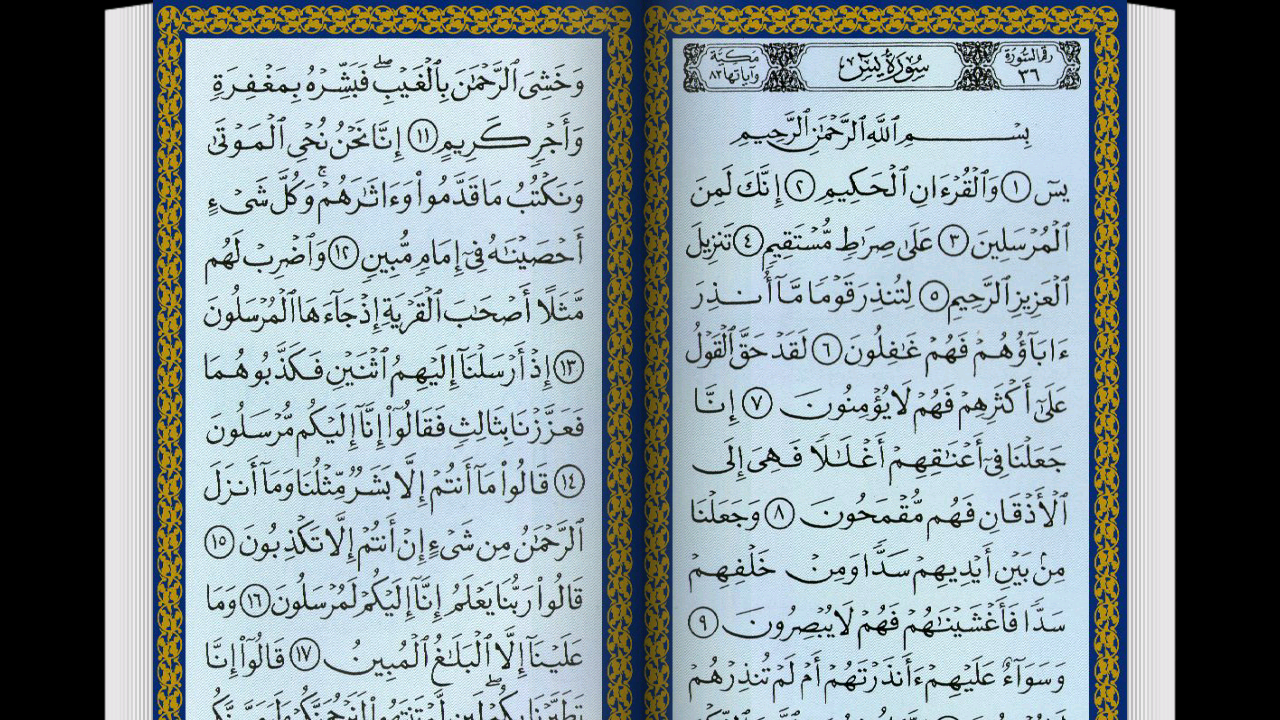 رقم السورة
٣٦
سُورَةُ يسٓ
مكية
وآياتها ٨٣
بِسْمِ ٱللَّهِ ٱلرَّحْمَٰنِ ٱلرَّحِيمِ
يسٓ ١ وَٱلْقُرْءَانِ ٱلْحَكِيمِ ٢ إِنَّكَ لَمِنَ
ٱلْمُرْسَلِينَ ٣ عَلَىٰ صِرَٰطٍ مُّسْتَقِيمٍ ٤ تَنزِيلَ
ٱلْعَزِيزِ ٱلرَّحِيمِ ٥ لِتُنذِرَ قَوْمًا مَّآ أُنذِرَ
ءَابَآؤُهُمْ فَهُمْ غَٰفِلُونَ ٦ لَقَدْ حَقَّ ٱلْقَوْلُ
عَلَىٰٓ أَكْثَرِهِمْ فَهُمْ لَا يُؤْمِنُونَ ٧ إِنَّا
جَعَلْنَا فِىٓ أَعْنَٰقِهِمْ أَغْلَٰلًا فَهِىَ إِلَى
ٱلْأَذْقَانِ فَهُم مُّقْمَحُونَ ٨ وَجَعَلْنَا
مِنۢ بَيْنِ أَيْدِيهِمْ سَدًّا وَمِنْ خَلْفِهِمْ
سَدًّا فَأَغْشَيْنَٰهُمْ فَهُمْ لَا يُبْصِرُونَ ٩
وَسَوَآءٌ عَلَيْهِمْ ءَأَنذَرْتَهُمْ أَمْ لَمْ تُنذِرْهُمْ
وَخَشِىَ ٱلرَّحْمَٰنَ بِٱلْغَيْبِ ۖ فَبَشِّرْهُ بِمَغْفِرَةٍ
وَأَجْرٍ كَرِيمٍ ١١ إِنَّا نَحْنُ نُحْىِ ٱلْمَوْتَىٰ
وَنَكْتُبُ مَا قَدَّمُوا۟ وَءَاثَٰرَهُمْ ۚ وَكُلَّ شَىْءٍ
أَحْصَيْنَٰهُ فِىٓ إِمَامٍ مُّبِينٍ ١٢ وَٱضْرِبْ لَهُم
مَّثَلًا أَصْحَٰبَ ٱلْقَرْيَةِ إِذْ جَآءَهَا ٱلْمُرْسَلُونَ
١٣ إِذْ أَرْسَلْنَآ إِلَيْهِمُ ٱثْنَيْنِ فَكَذَّبُوهُمَا
فَعَزَّزْنَا بِثَالِثٍ فَقَالُوٓا۟ إِنَّآ إِلَيْكُم مُّرْسَلُونَ
١٤ قَالُوا۟ مَآ أَنتُمْ إِلَّا بَشَرٌ مِّثْلُنَا وَمَآ أَنزَلَ
ٱلرَّحْمَٰنُ مِن شَىْءٍ إِنْ أَنتُمْ إِلَّا تَكْذِبُونَ ١٥
قَالُوا۟ رَبُّنَا يَعْلَمُ إِنَّآ إِلَيْكُمْ لَمُرْسَلُونَ ١٦ وَمَا
عَلَيْنَآ إِلَّا ٱلْبَلَٰغُ ٱلْمُبِينُ ١٧ قَالُوٓا۟ إِنَّا